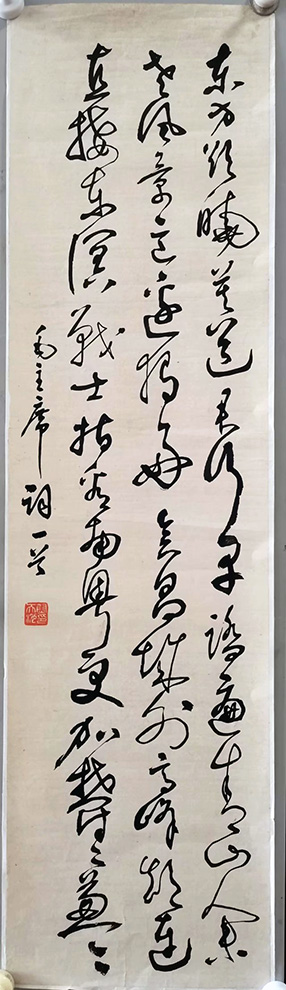 东方欲曉莫道君行早踏遍青山人未
老风景这边独好会昌城外高峰颠连
直接东溟战士指看南粤更加郁々葱々
毛主席词一首